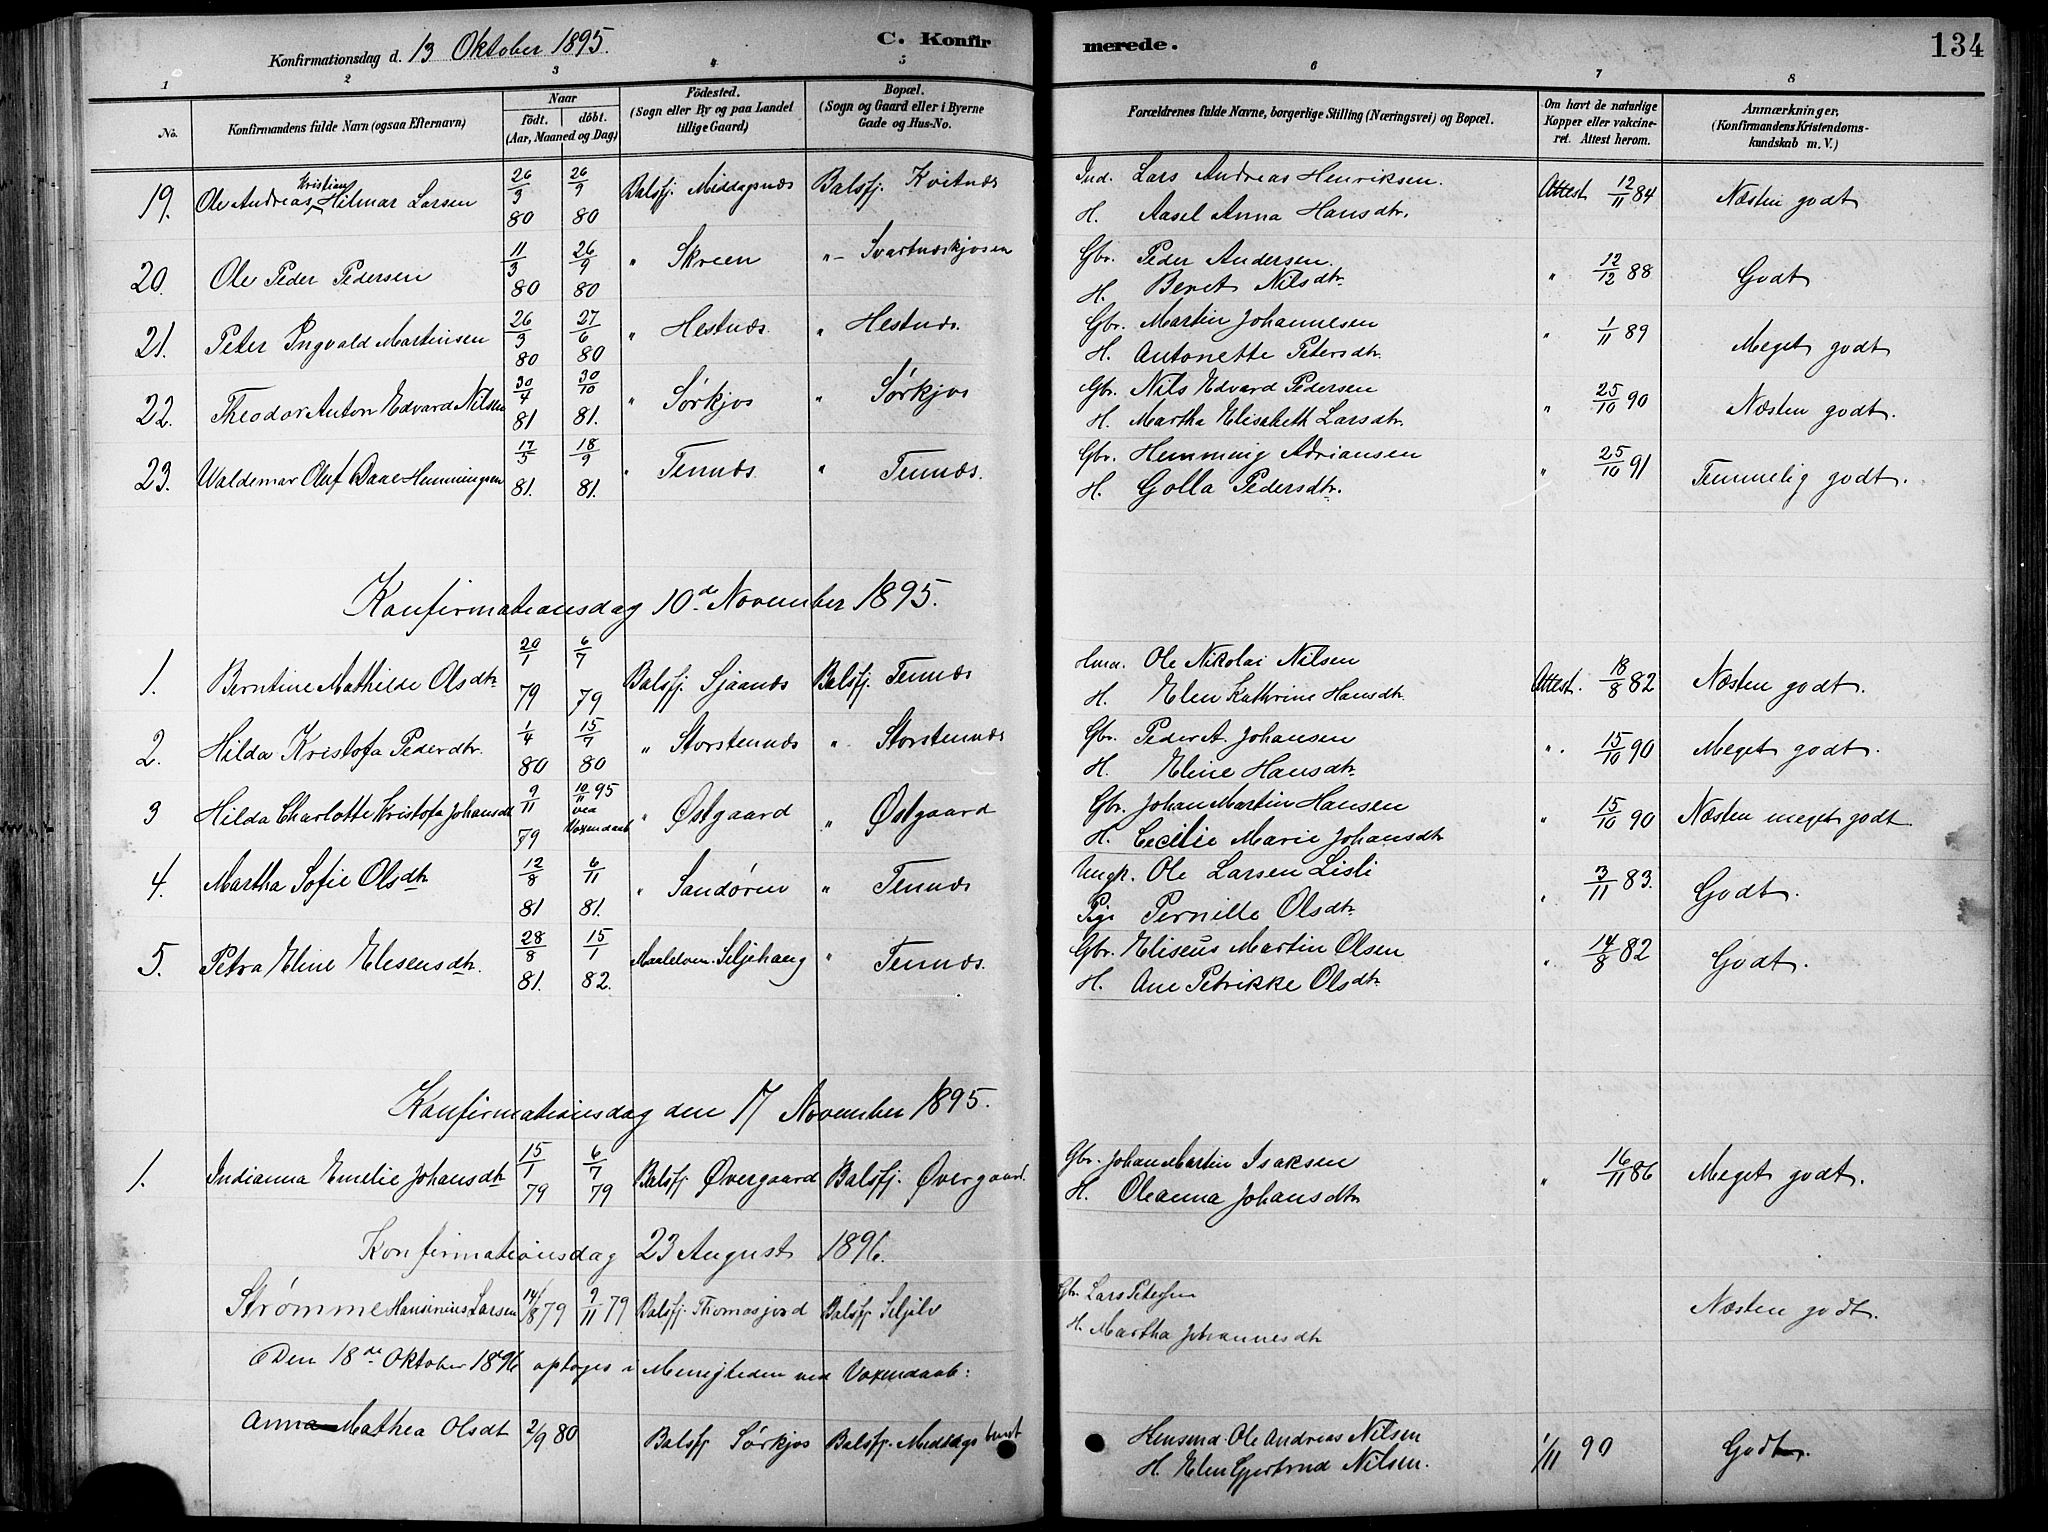 Konfirmationsdag d. 13 Oktober 1895. C. Konfir merede. 134
1 2 3 4 5 6 7 8
No. Konfirmandens fulde Navn (ogsaa Efternavn) Naar født. døbt. (Aar, Maaned og Dag) Fødested. (Sogn eller By og paa Landet tillige Gaard) Bopæl. (Sogn og Gaard eller i Byerne Gade og Hus-No. Forældrenes fulde Navne, borgerlige Stilling (Næringsvei) og Bopæl. Om havt de naturlige Kopper eller vakcineret. Attest herom. Anmærkninger, (Konfirmandens Kristendomskundskab m. V.)
19. Ole Andreas Kristian Hilmar Larsen 26/3 80 26/9 80 Balsfj. Middagsnæs Balsfj. Kvitnæs Ind. Lars Andreas Henriksen. Attest 12/11 84 Næsten godt
H. Aasel Anna Hansdtr.
20. Ole Peder Pedersen 11/3 80 26/9 80 " Skreen " Svartnæskjosen Gbr. Peder Andersen. " 12/12 88 Godt
H. Beret Nilsdtr.
21. Peter Ingvald Martinsen 26/3 80 27/6 80 " Hestnæs. " Hestnæs. Gbr. Martin Johannesen " 1/11 89 Meget godt
H. Antonette Petersdtr.
22. Theodor Anton Edvard Nilsen 30/4 81 30/10 81. " Sørkjos " Sørkjos Gbr. Nils Edvard Pedersen " 25/10 90 Næsten godt.
H. Martha Elisabeth Larsdtr.
23. Waldemar Oluf Daae Henningsen 17/5 81. 18/9 81. " Tennæs. " Tennæs. Gbr. Hemming Adriansen " 25/10 91 Temmelig godt.
H. Golla Pedersdtr.
Konfirmationsdag 10de November 1895.
1. Berntine Mathilde Olsdtr 20/1 79 6/7 79 Balsfj. Sjaanæs Balsfj. Tennæs Hmd. Ole Nikolai Nilsen Attest. 18/8 82 Næsten godt.
H. Elen Kathrine Hansdtr.
2. Hilda Kristofa Pederdtr. 1/4 80 15/7 80 " Storstennæs " Storstennæs Gbr. Peder A. Johansen " 15/10 90 Meget godt.
H. Eline Hansdtr.
3 Hilda Charlotte Kristofa Johansdt 9/11 79 10/11 95 ved Voxendaab " Østgaard " Østgaard Gbr. Johan Martin Hansen " 15/10 90 Næsten meget godt.
H. Cecilie Marie Johansdtr
4. Martha Sofie Olsdtr 12/8 81 6/11 81. " Sandøren " Tennæs Ungk. Ole Larsen Lisli " 3/11 83. Godt.
Pige Pernille Olsdtr.
5. Petra Eline Elesensdtr. 28/8 81. 15/1 82. Maalelven. Seljehaug " Tennæs. Gbr. Eliseus Martin Olsen " 14/8 82 Godt.
H. Ane Petrikke Olsdtr.
Konfirmationsdag den 17 November 1895.
1. Indianna Emelie Johansdtr 15/1 79 6/7 79 Balsfj Øvergaard Balsfj. Øvergaard. Gbr. Johan Martin Isaksen " 16/11 86 Meget godt.
H. Oleanna Johansdtr
Konfirmationsdag 23 August 1896.
Strømme Hansinius Larsen 14/8 79 9/11 79 Balsfj. Thomasjord Balsfj Seljelv Gbr. Lars Petersen Næsten godt.
H. Martha Johannesdtr
Den 18de Oktober 1896 optages i Menigheden ved Voxendaab:
Anna Mathea Olsdt 2/9 80 Balsfj Sørkjos Balsfj. Middagsbugt Husmd. Ole Andreas Nilsen 1/11 90 Godt.
H. Elen Gjertrud Nilsen.